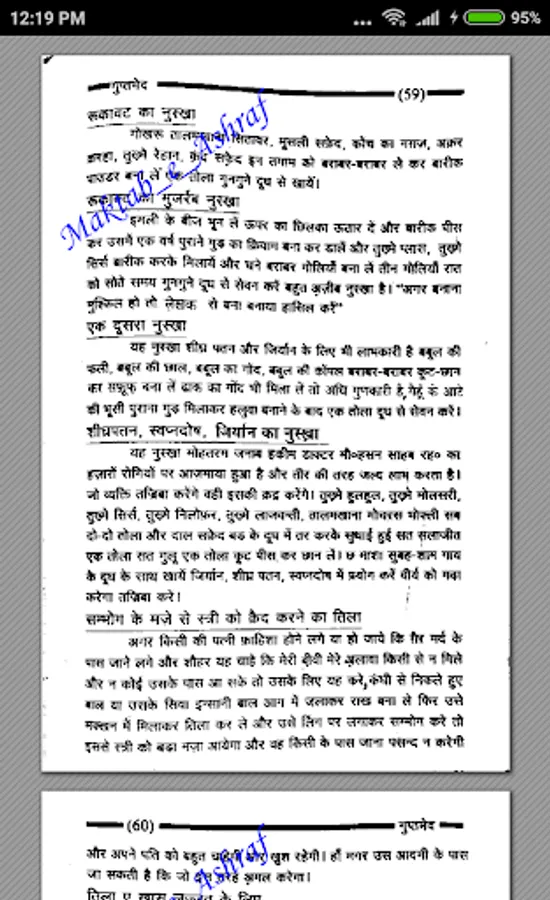 12:19 PM
95%
गुप्तभेद
(59)
रूकावट का नुस्ख़ा
गोखरू तालमखाना सितावर, मुसली सफ़ेद, कोंच का मग़ज, अक़र
क़रहा, तुख़्मे रेहान, क़ंद सफ़ेद इन तमाम को बराबर-बराबर ले कर बारीक
पाउडर बना लें एक तोला गुनगुने दूध से खायें।
रूकावट का मुजर्रब नुस्ख़ा
इमली के बीज भून लें ऊपर का छिलका ऊतार दें और बारीक पीस
कर उसमें एक वर्ष पुराने गुड़ का क़िवाम बना कर डालें और तुख़्मे प्लास, तुख़्मे
सिर्स बारीक करके मिलायें और चने बराबर गोलियाँ बना लें तीन गोलियाँ रात
को सोते समय गुनगुने दूध से सेवन करें बहुत अज़ीब नुस्ख़ा है। "अगर बनाना
मुश्किल हो तो लेखक से बना बनाया हासिल करें"
एक दूसरा नुस्ख़ा
यह नुस्ख़ा शीघ्र पतन और जिर्यान के लिए भी लाभकारी है बबूल की
फली, बबूल की छाल, बबूल का गोंद, बबूल की कोंपल बराबर-बराबर कूट-छान
का सफ़ूफ़ बना लें ढाक का गोंद भी मिला लें तो अधि गुणकारी है, गेहूं के आटे
की भूसी पुराना गुड़ मिलाकर हलुवा बनाने के बाद एक तोला दूध से सेवन करें।
शीघ्रपतन, स्वप्नदोष, जिर्यान का नुस्ख़ा
यह नुस्ख़ा मोहतरम जनाब हकीम डाक्टर मौ०हसन साहब रह० का
हज़ारों रोगियों पर आज़माया हुआ है और तीर की तरह जल्द लाभ करता है।
जो व्यक्ति तज्रिबा करेंगे वही इसकी क़द्र करेंगे। तुख़्मे हुलहूल, तुख़्मे मोलसरी,
तुख़्मे सिर्स, तुख़्मे निलोफ़र, तुख़्मे लाजवन्ती, तालमखाना मोचरस भोफ्ली सब
दो-दो तोला और दाल सफ़ेद बड़ के दूध में तर करके सुखाई हुई सत सलाजीत
एक तोला सत गुलू एक तोला कूट पीस कर छान लें। छ माशा सुबह-शाम गाय
के दूध के साथ खायें जिर्यान, शीघ्र पतन, स्वप्नदोष में प्रयोग करें वीर्य को गाढ़ा
करेगा तज्रिबा करे।
सम्भोग के मज़े से स्त्री को क़ैद करने का तिला
अगर किसी की पत्नी फ़ाहिशा होने लगे या हो जाये कि ग़ैर मर्द के
पास जाने लगे और शौहर यह चाहे कि मेरी बीवी मेरे अलावा किसी से न मिले
और न कोई उसके पास आ सके तो उसके लिए यह करे, कंघी से निकले हुए
बाल या उसके सिवा इन्सानी बाल आग में जलाकर राख बना ले फिर उसे
मक्खन में मिलाकर तिला कर ले और उसे लिंग पर लगाकर सम्भोग करे तो
इससे स्त्री को बड़ा मज़ा आयेगा और वह किसी के पास जाना पसन्द न करेगी
Maktab_e_Ashraf
(60)
गुप्तभेद
और अपने पति को बहुत चाहेगी और खुश रहेगी। हाँ मगर उस आदमी के पास
जा सकती है कि जो इस तरह अमल करेगा।
तिला ए ख़ास लज़्ज़त के लिए
Ashraf